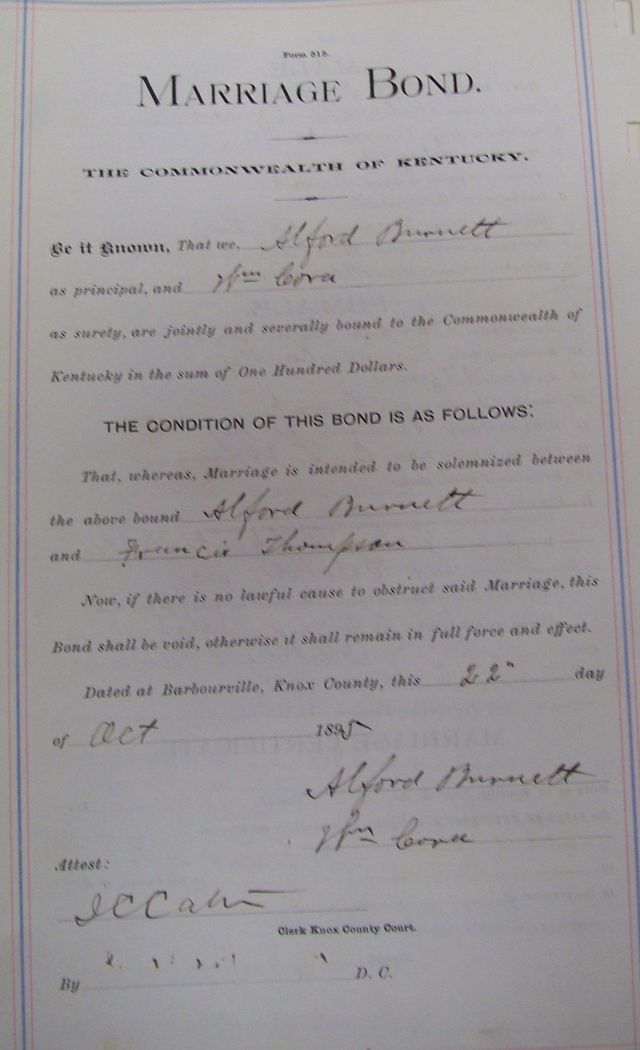 Form 515.
MARRIAGE BOND.
THE COMMONWEALTH OF KENTUCKY.
Be it Known, That we, Alford Burnett
as principal, and Wm Cova
as surety, are jointly and severally bound to the Commonwealth of
Kentucky in the sum of One Hundred Dollars.
THE CONDITION OF THIS BOND IS AS FOLLOWS:
That, whereas, Marriage is intended to be solemnized between
the above bound Alford Burnett
and Francis Thompson
Now, if there is no lawful cause to obstruct said Marriage, this
Bond shall be void, otherwise it shall remain in full force and effect.
Dated at Barbourville, Knox County, this 22" day
of Oct 1895
Alford Burnett
Wm Cova
Attest:
Clerk Knox County Court.
By D. C.